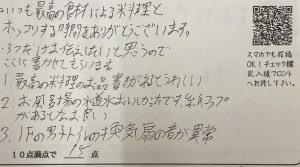 いつも最高の食材による米料理と
ホッコリする時間をありがとうございます。
3つだけお伝えしたいと思うので
ここに書かせてもらいます
1. 最高の料理のお品書きがあるとうれしい
2. お風呂場の水道水おいしかったです。紙コップ
があるとなお良い
3. 1Fの男子トイルの換気扇の音が異常
10点満点で 15 点
スマホでも投稿
OK!チェック欄
記入後フロント
へお渡し下さい。